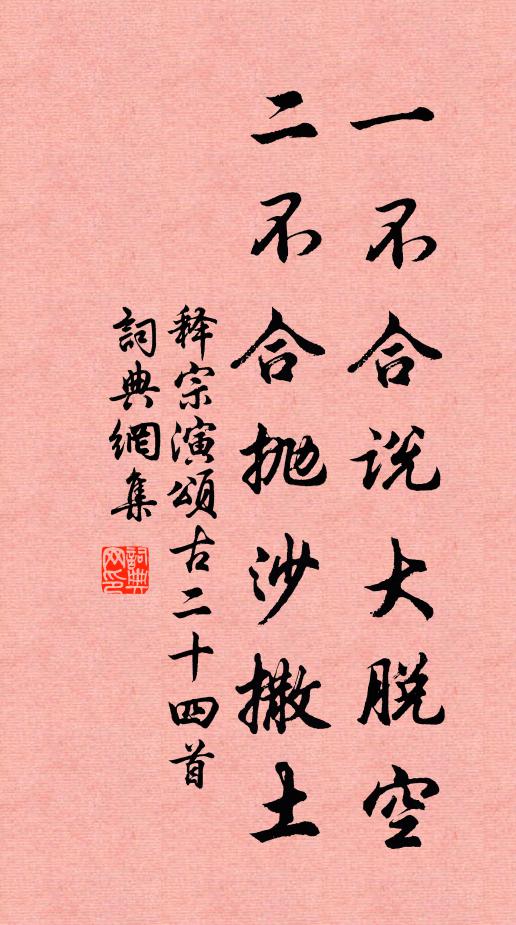 一不合说大脱空
二不合抛沙撒土
释宗演颂古二十四首
詞典網集
詞典网印